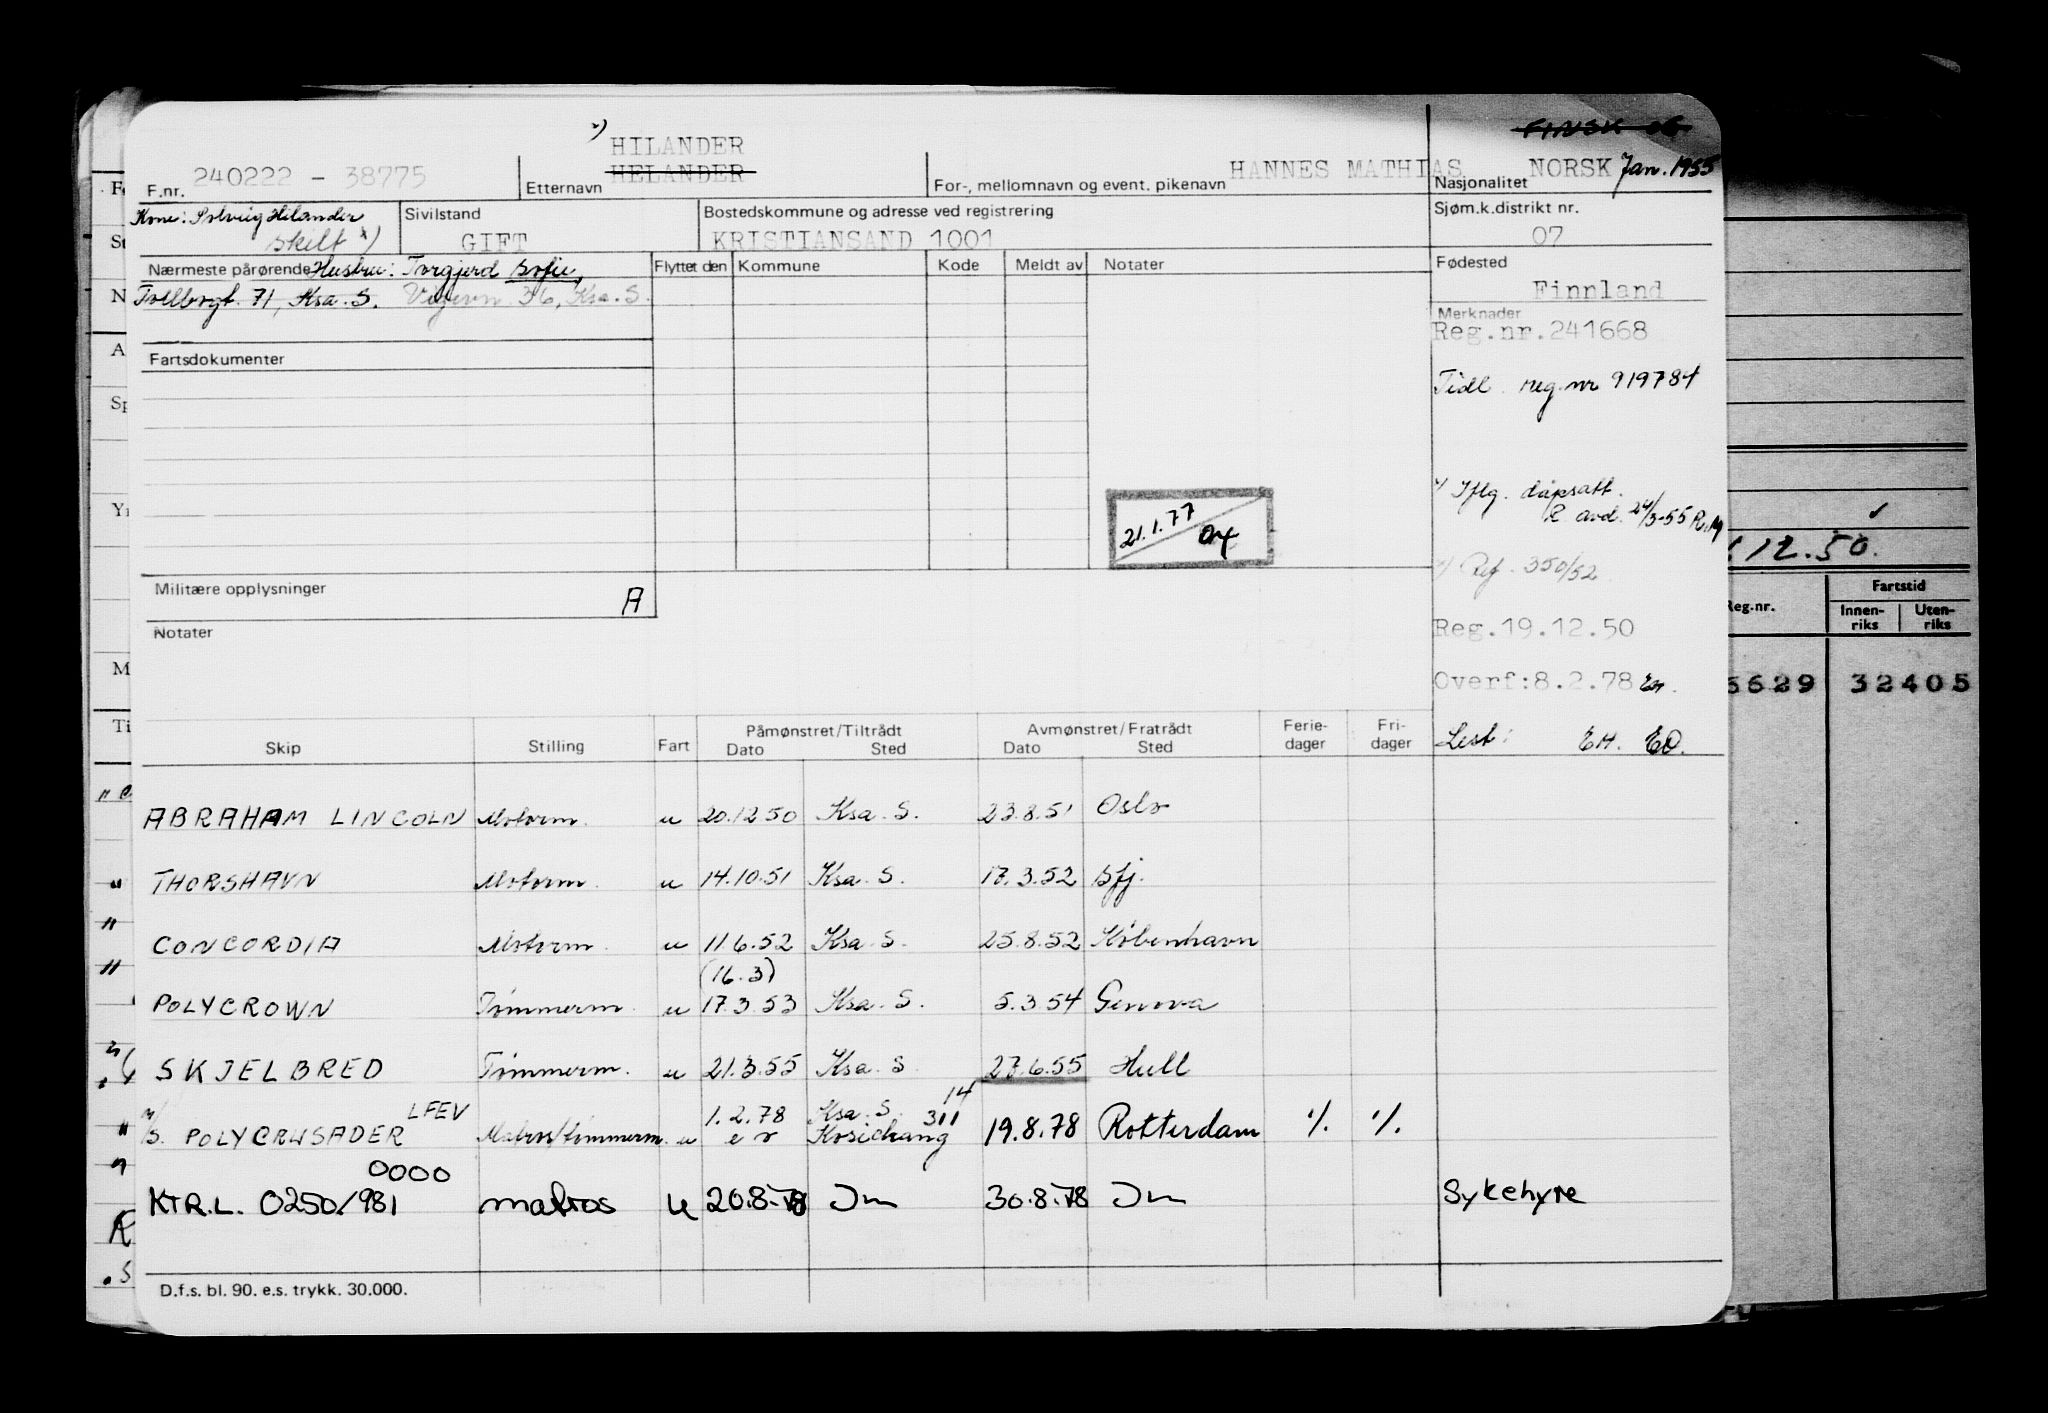 HILANDER
F.nr. 240222 - 38775 Etternavn HELANDER For-, mellomnavn og event. pikenavn HANNES MATHIAS
FINSK
Nasjonalitet NORSK Jan. 1955
Kone: Solveig Hilander
skilt
Sivilstand
GIFT
Bostedskommune og adresse ved registrering
KRISTIANSAND 1001
Sjøm.k.distrikt nr.
07
Nærmeste pårørende Hustru: Torgjerd Sofie,
Tollbogt. 71, Ksa. S. 36, Ksa. S.
Flyttet den Kommune Kode Meldt av Notater
Fødested
Finnland
Merknader
Reg.nr.241668
Tidl. reg. nr 919784
Fartsdokumenter
Iflg. dåpsatt.
24/3-55
21.1.77
Ref. 350/52
Militære opplysninger A
Notater
Reg.19.12.50
Overf:8.2.78
Lest: EH. EO.
Skip Stilling Fart Påmønstret/Tiltrådt Dato Sted Avmønstret/Fratrådt Dato Sted Ferie-dager Fri-dager
ABRAHAM LINCOLN Motorm. u 20.12.50 Ksa. S. 23.8.51 Oslo
THORSHAVN Motorm. u 14.10.51 Ksa. S. 17.3.52 Sfj.
CONCORDIA Motorm. u 11.6.52 Ksa. S. 25.8.52 København
(16.3)
POLYCROWN Tømmerm. u 17.3.53 Ksa. S. 5.3.54 Genova
SKJELBRED Tømmerm. u 21.3.55 Ksa. S. 27.6.55 Hull
LFEV 1.2.78 Ksa. S. 14
311
POLYCRUSADER Matros/tømmerm. u Kosichang 19.8.78 Rotterdam
0000
KTR.L. 0250/981 matros u 20.8.78 30.8.78 Sykehyre
D.f.s. bl. 90. e.s. trykk. 30.000.
12.50.
Reg.nr. Fartstid
Innen-riks Uten-riks
6629 32405